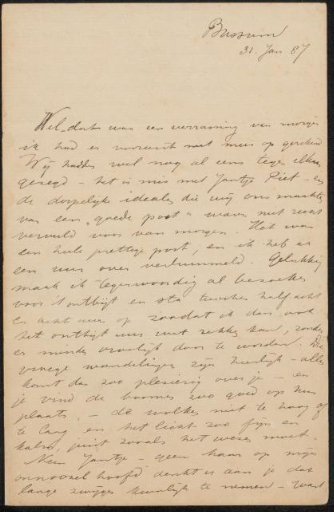 Bussum
31 Jan 87
Wel, dat was een verrassing van morgen
ik had er niet meer op gerekend
Wij hadden wel nog al eens tegen elkaar
gezegd – het is mis met Jantje Piet – en
de dorpelijke idealen die wij ons maakten
van een "goede post" waren niet
vervuld voor van morgen. Het was
een hele prettige post, en ik heb er
een uur over verbummeld. Gelukkig
maak ik tegenwoordig al
voor 't ontbijt en sta tusschen half acht
en acht uur op zoodat ik dan ook
het ontbijt wat rekken kan, zonder
er minder om te worden. De
vroege wandelingen zijn heerlijk – alles
komt dan zoo plezierig over je – en
je vind de boomen zoo goed op hun
plaats, – de wolken niet te hoog of
te laag en het licht zoo fijn en
kalm, juist zooals het wezen moet.
Neen Jantje – geen haar op mijn
onnoozel hoofd denkt er aan je dat
lange zwijgen kwalijk te nemen – want